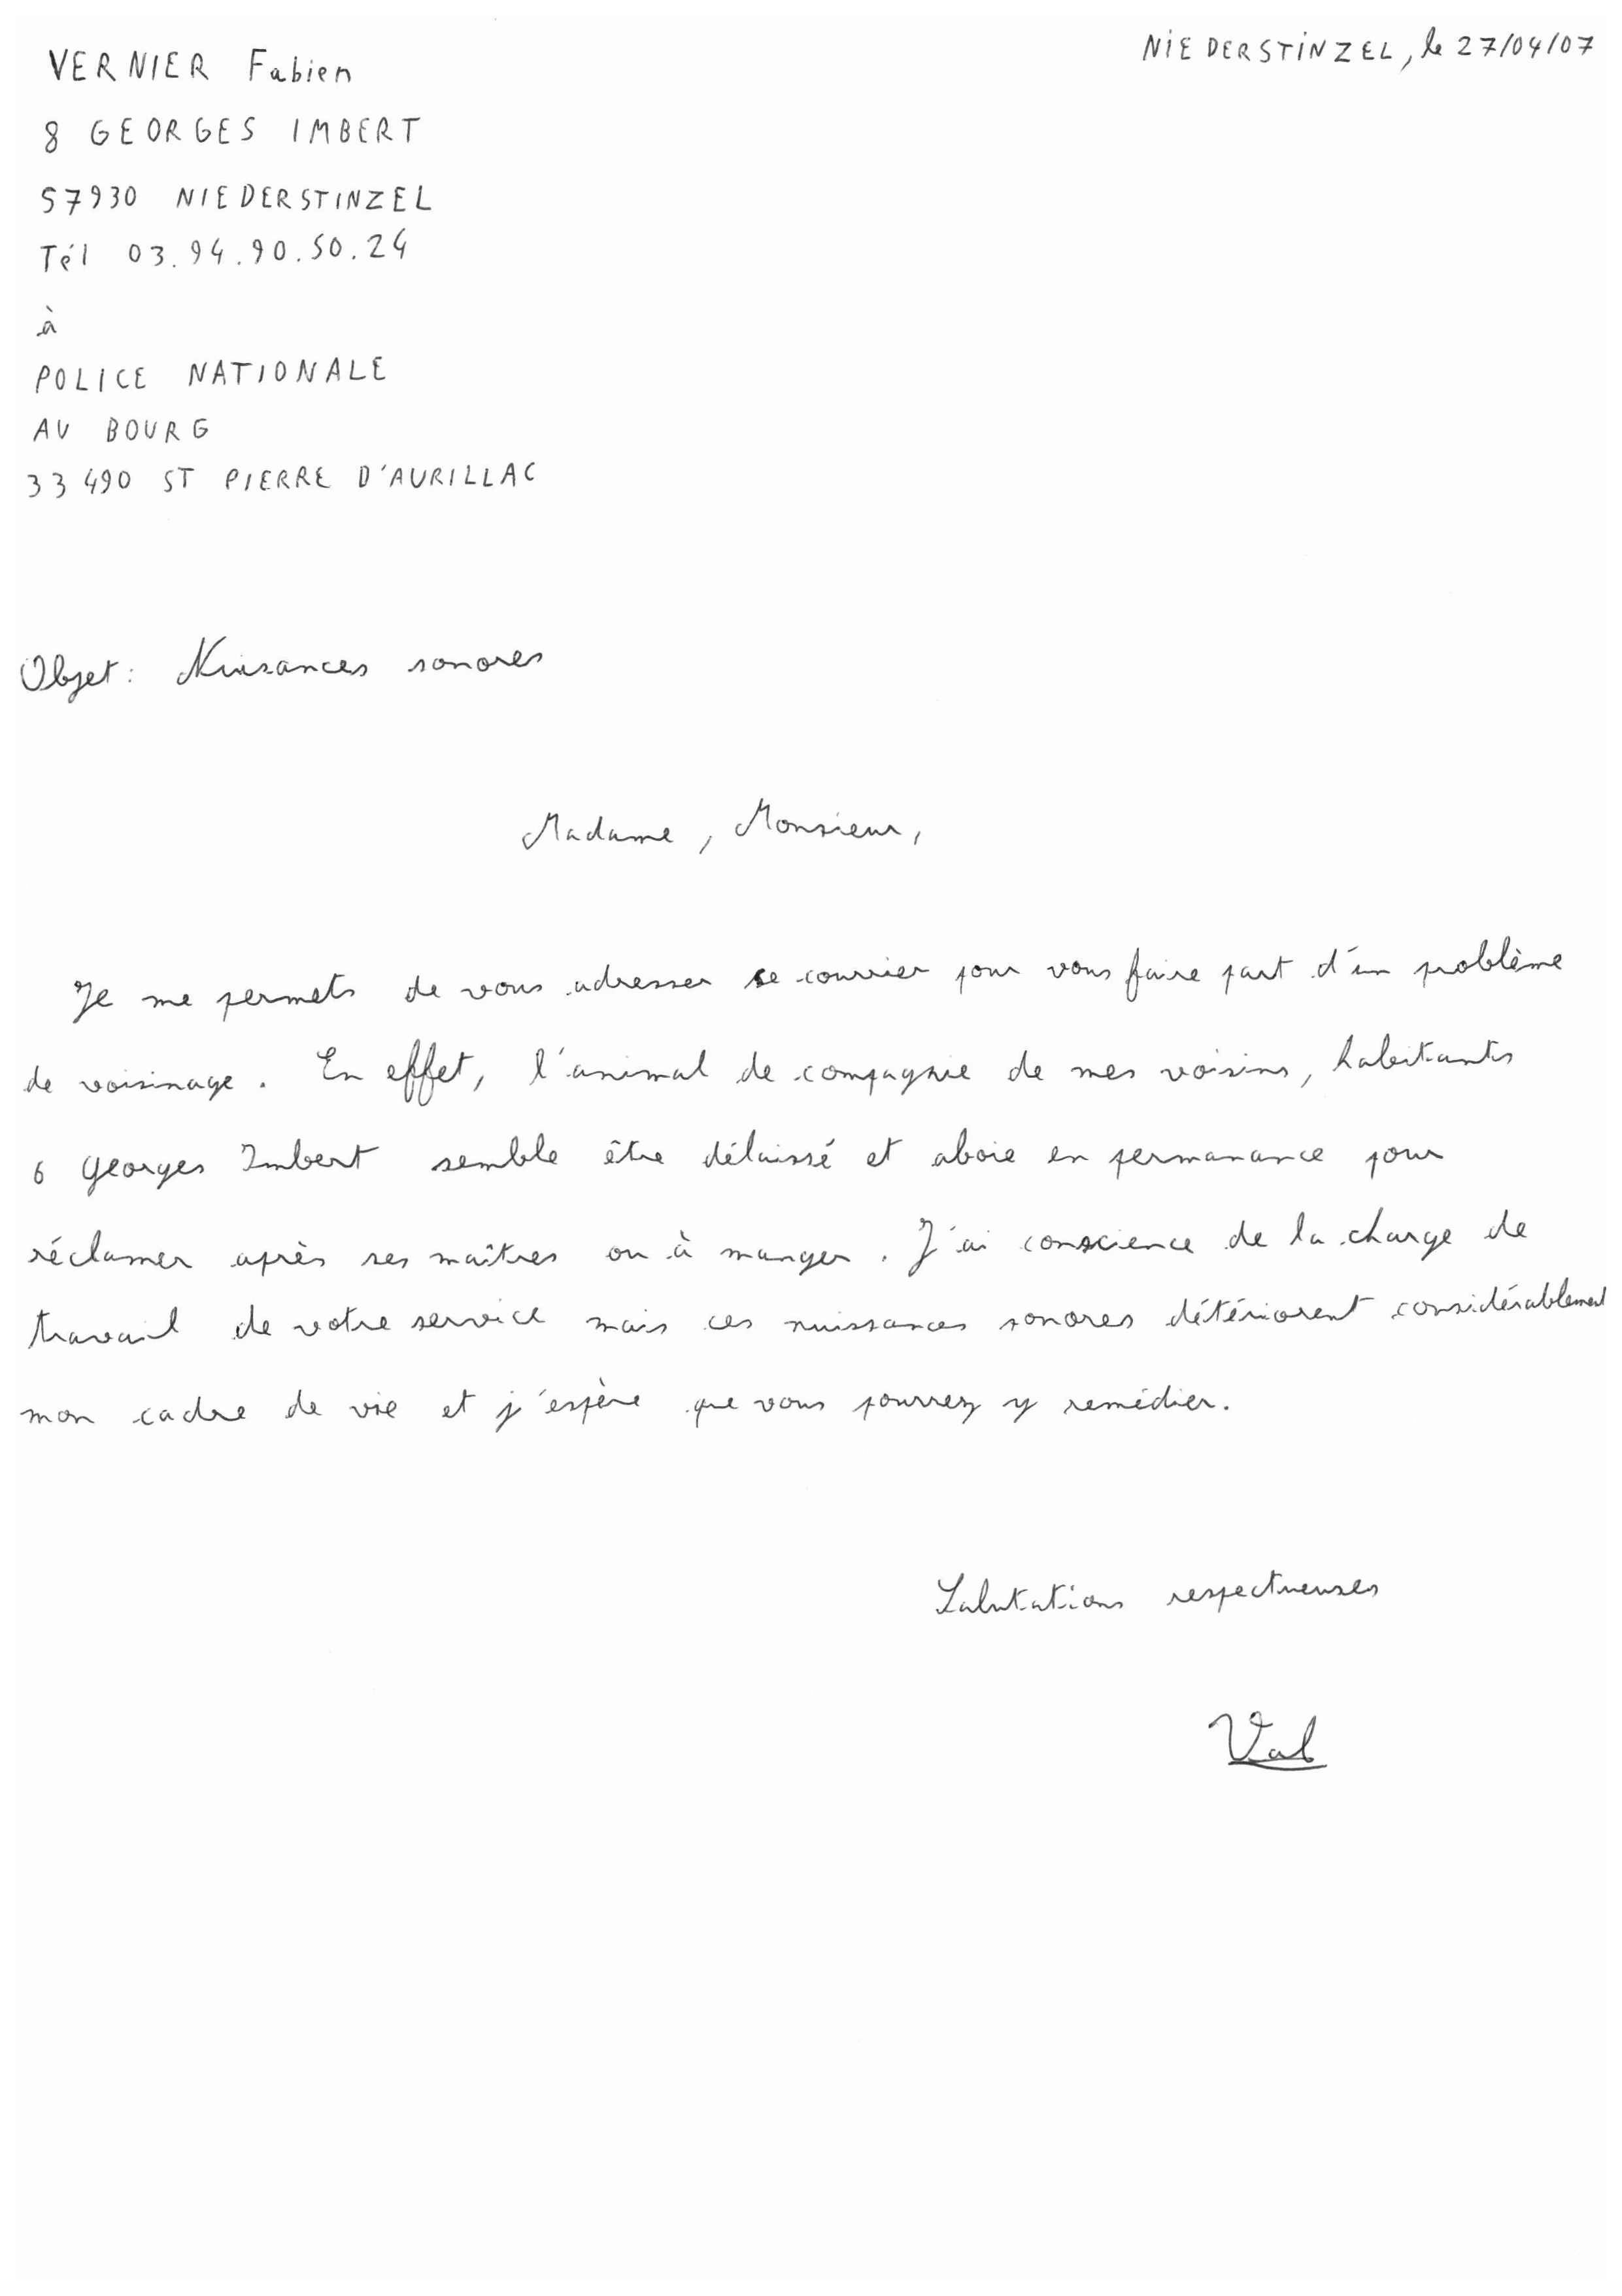 VERNIER Fabien
NiEDERSTiNZEL, le 27/04/07
8 GEORGES IMBERT
57930 NIEDERSTINZEL
Tél 03.94.90.50.24
à
POLICE NATIONALE
AU BOURG
33490 ST PIERRE D'AURILLAC
Objet : Nuisances sonores
Madame, Monsieur,
Je me permets de vous adresser ce courrier pour vous faire part d'un problème
de voisinage. En effet, l'animal de compagnie de mes voisins, habitants
6 Georges Imbert semble être délaissé et aboie en permanance pour
réclamer après ses maîtres ou à manger. J'ai conscience de la charge de
travail de votre service mais ces nuissances sonores détériorent considérablement
mon cadre de vie et j'espère que vous pourrez y remédier.
Salutations respectueuses
Val